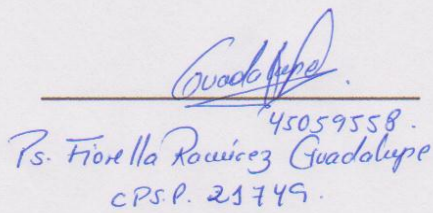 Guadalupe
45059558.
Ps. Fiorella Ramírez Guadalupe
C.PS.P. 21749.